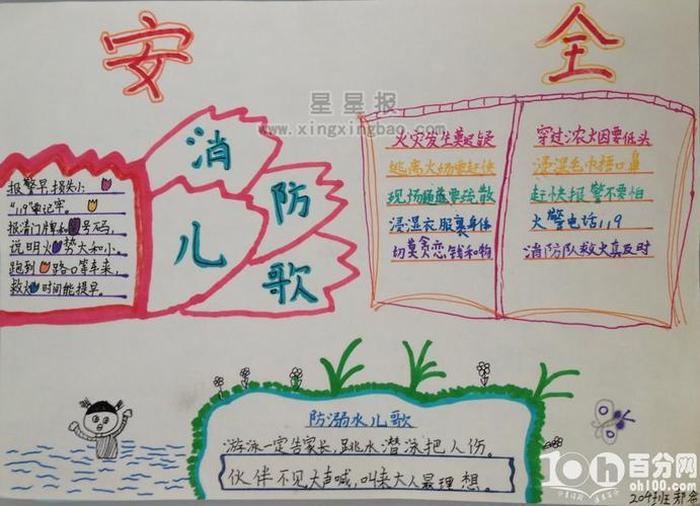 安全
星星报
www.xingxingbao.com
消防儿歌
报警早,损失小
"119"牢记牢。
报清门牌和号码,
说明火势大和小,
跑到路口等车来,
救火时间能提早。
火灾发生莫迟疑
逃离火场要赶快
现场随道要疏散
浸湿衣服裹身体
切莫贪恋钱和物
穿过浓烟要低头
浸湿毛巾捂口鼻
赶快报警不要怕
火警电话119
消防队救火真及时
防溺水儿歌
游泳一定告家长,跳水潜泳把人伤。
伙伴不见大声喊,叫来大人最理想。
百分网
oh100.com
204班